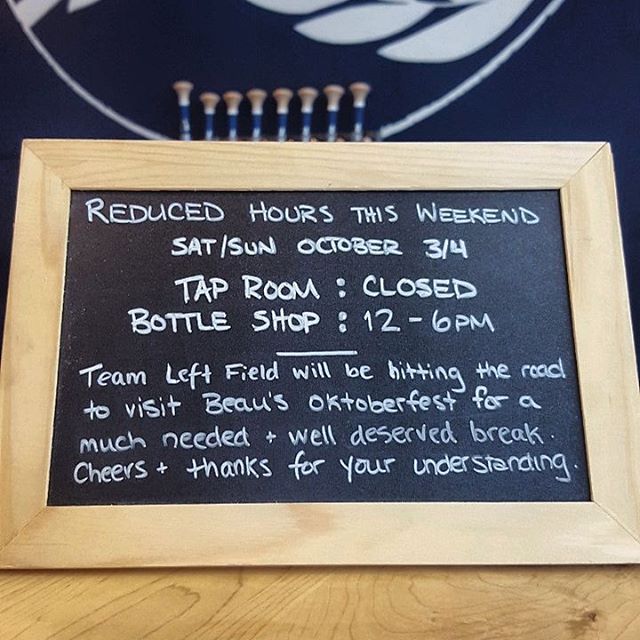 REDUCED HOURS THIS WEEKEND
SAT/SUN OCTOBER 3/4
TAP ROOM : CLOSED
BOTTLE SHOP : 12 - 6PM
Team Left Field will be hitting the road
to visit Beau's Oktoberfest for a
much needed + well deserved break.
Cheers + thanks for your understanding.